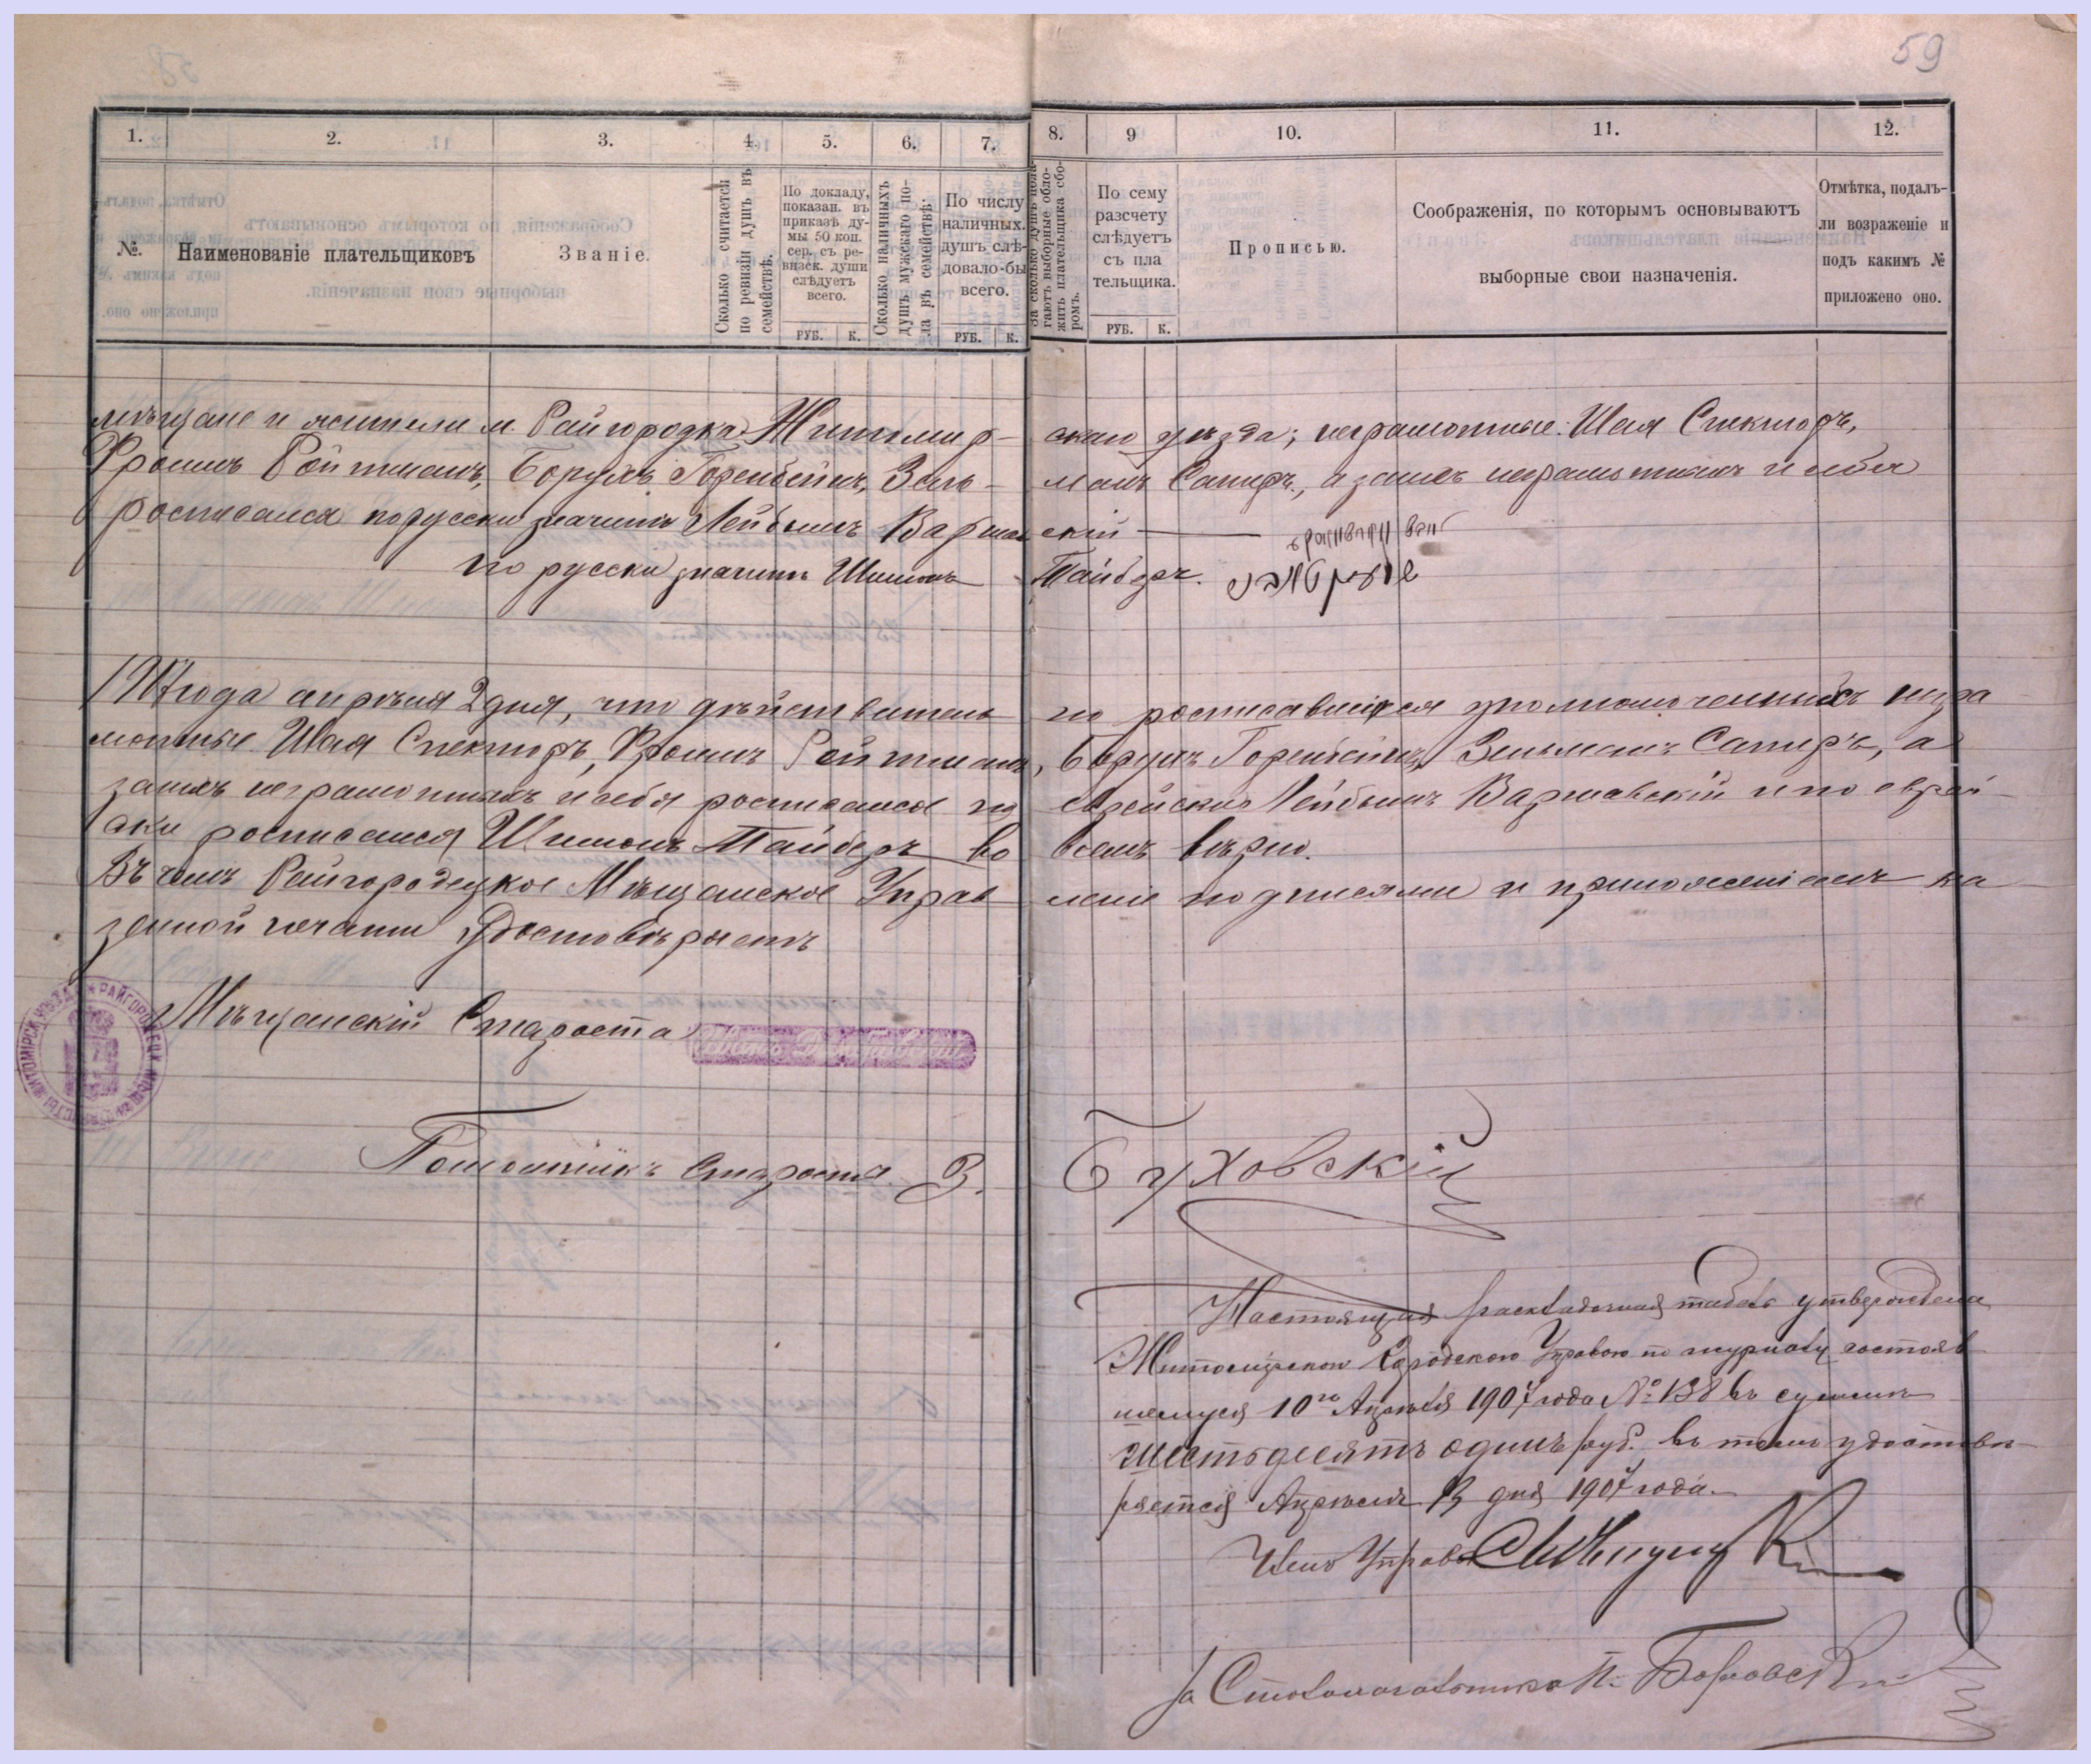 59
1. 2. 3. 4. 5. 6. 7. 8. 9 10. 11. 12.
№.
Наименованіе плательщиковъ
Званіе.
Сколько считается
по ревизіи душъ въ
семействѣ.
По докладу,
показан. въ
приказѣ ду-
мы 50 коп.
сер. съ ре-
визск. души
слѣдуетъ
всего.
РУБ. К.
Сколько наличныхъ
душъ мужскаго по-
ла въ семействѣ.
По числу
наличных.
душъ слѣ-
довало-бы
всего.
РУБ. К.
За сколько душъ пола-
гаютъ выборные обло-
жить плательщика сбо-
ромъ.
По сему
разсчету
слѣдуетъ
съ пла
тельщика.
РУБ. К.
Прописью.
Соображенія, по которымъ основываютъ
выборные свои назначенія.
Отмѣтка, подалъ-
ли возраженіе и
подъ какимъ №
приложено оно.
мѣщане и жители м. Райгородка Житомир- скаго уѣзда; неграмотные: Шая Спекторъ,
Фроимъ Ройтманъ, Борухъ Горенбейнъ, Зель- манъ Сапиръ, а за нихъ неграмотныхъ и себя
росписался по русски значитъ Лейбышъ Варшав скій
по русски значитъ Шимонъ Тайберъ.
года апрѣля 2 дня, что дѣйствитель но росписавшіеся уполномоченныхъ негра
мотные Шая Спекторъ, Фроимъ Ройтманъ, Борухъ Горенбейнъ, Зельманъ Сапиръ, а
за нихъ неграмотныхъ и себя росписался по еврейски Лейбышъ Варшавскій и по еврей-
ски росписался Шимонъ Тайберъ во всемъ вѣрно.
Въ чемъ Райгородецкое Мѣщанское Управ леніе подписями и приложеніемъ ка
зенной печати удостовѣряетъ
Мѣщанскій Староста
Помошникъ Старосты З. Буховскій
Настоящая раскладочная табель утверждена
Житомірскою Городскою Управою по журналу состояв
шемуся 10го Апрѣля 1907 года № 138 въ суммѣ
шестьдесятъ одинъ руб. въ томъ удостовѣ-
ряется Апрѣля 13 дня 1907 года.
Членъ Управы
За Столоначальника П. Боровскій